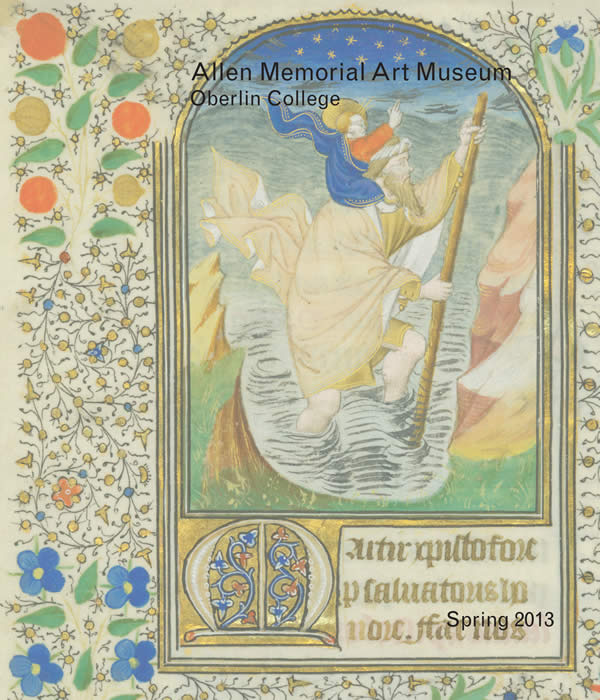 Allen Memorial Art Museum
Oberlin College
Martir xpistofore
p saluatoris ho
nore. ffac nos
Spring 2013